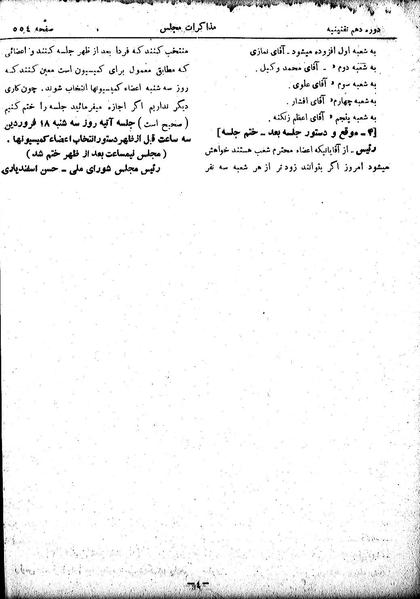 دوره دهم تقنینیه
مذاکرات مجلس
صفحه ۵۵۴
به شعبه اول افزوده میشود ـ آقای نمازی
به شعبه دوم » ـ آقای محمد وکیل .
به شعبه سوم » آقای علوی .
به شعبه چهارم » آقای افشار .
به شعبه پنجم » آقای اعظم زنگنه .
[۴ ـ موقع و دستور جلسه بعد ـ ختم جلسه]
رئیس ـ از آقایانیکه اعضاء محترم شعب هستند خواهش
میشود امروز اگر بتوانند زودتر از هر شعبه سه نفر
منتخب کنند که فردا بعد از ظهر جلسه کنند و اعضائی
که مطابق معمول برای کمیسیون است معین کنند که
روز سه شنبه اعضاء کمیسیونها انتخاب شوند . چون کاری
دیگر نداریم اگر اجازه میفرمائید جلسه را ختم کنیم
( صحیح است ) جلسه آتیه روز سه شنبه ۱۸ فروردین
سه ساعت قبل از ظهر دستور انتخاب اعضاء کمیسیونها .
( مجلس نیمساعت بعد از ظهر ختم شد )
رئیس مجلس شورای ملی ـ حسن اسفندیاری
ـ٤ـ